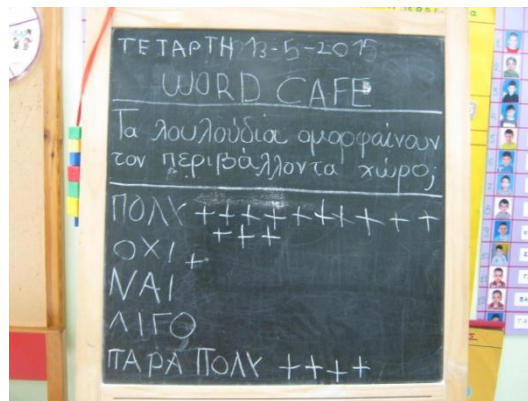 ΤΕΤΑΡΤΗ 13-5-2015
WORD CAFE
Τα λουλούδια ομορφαίνουν
τον περιβάλλοντα χώρο;
ΠΟΛΥ ++++++++++
+++
ΟΧΙ +
ΝΑΙ
ΛΙΓΟ
ΠΑΡΑ ΠΟΛΥ ++++